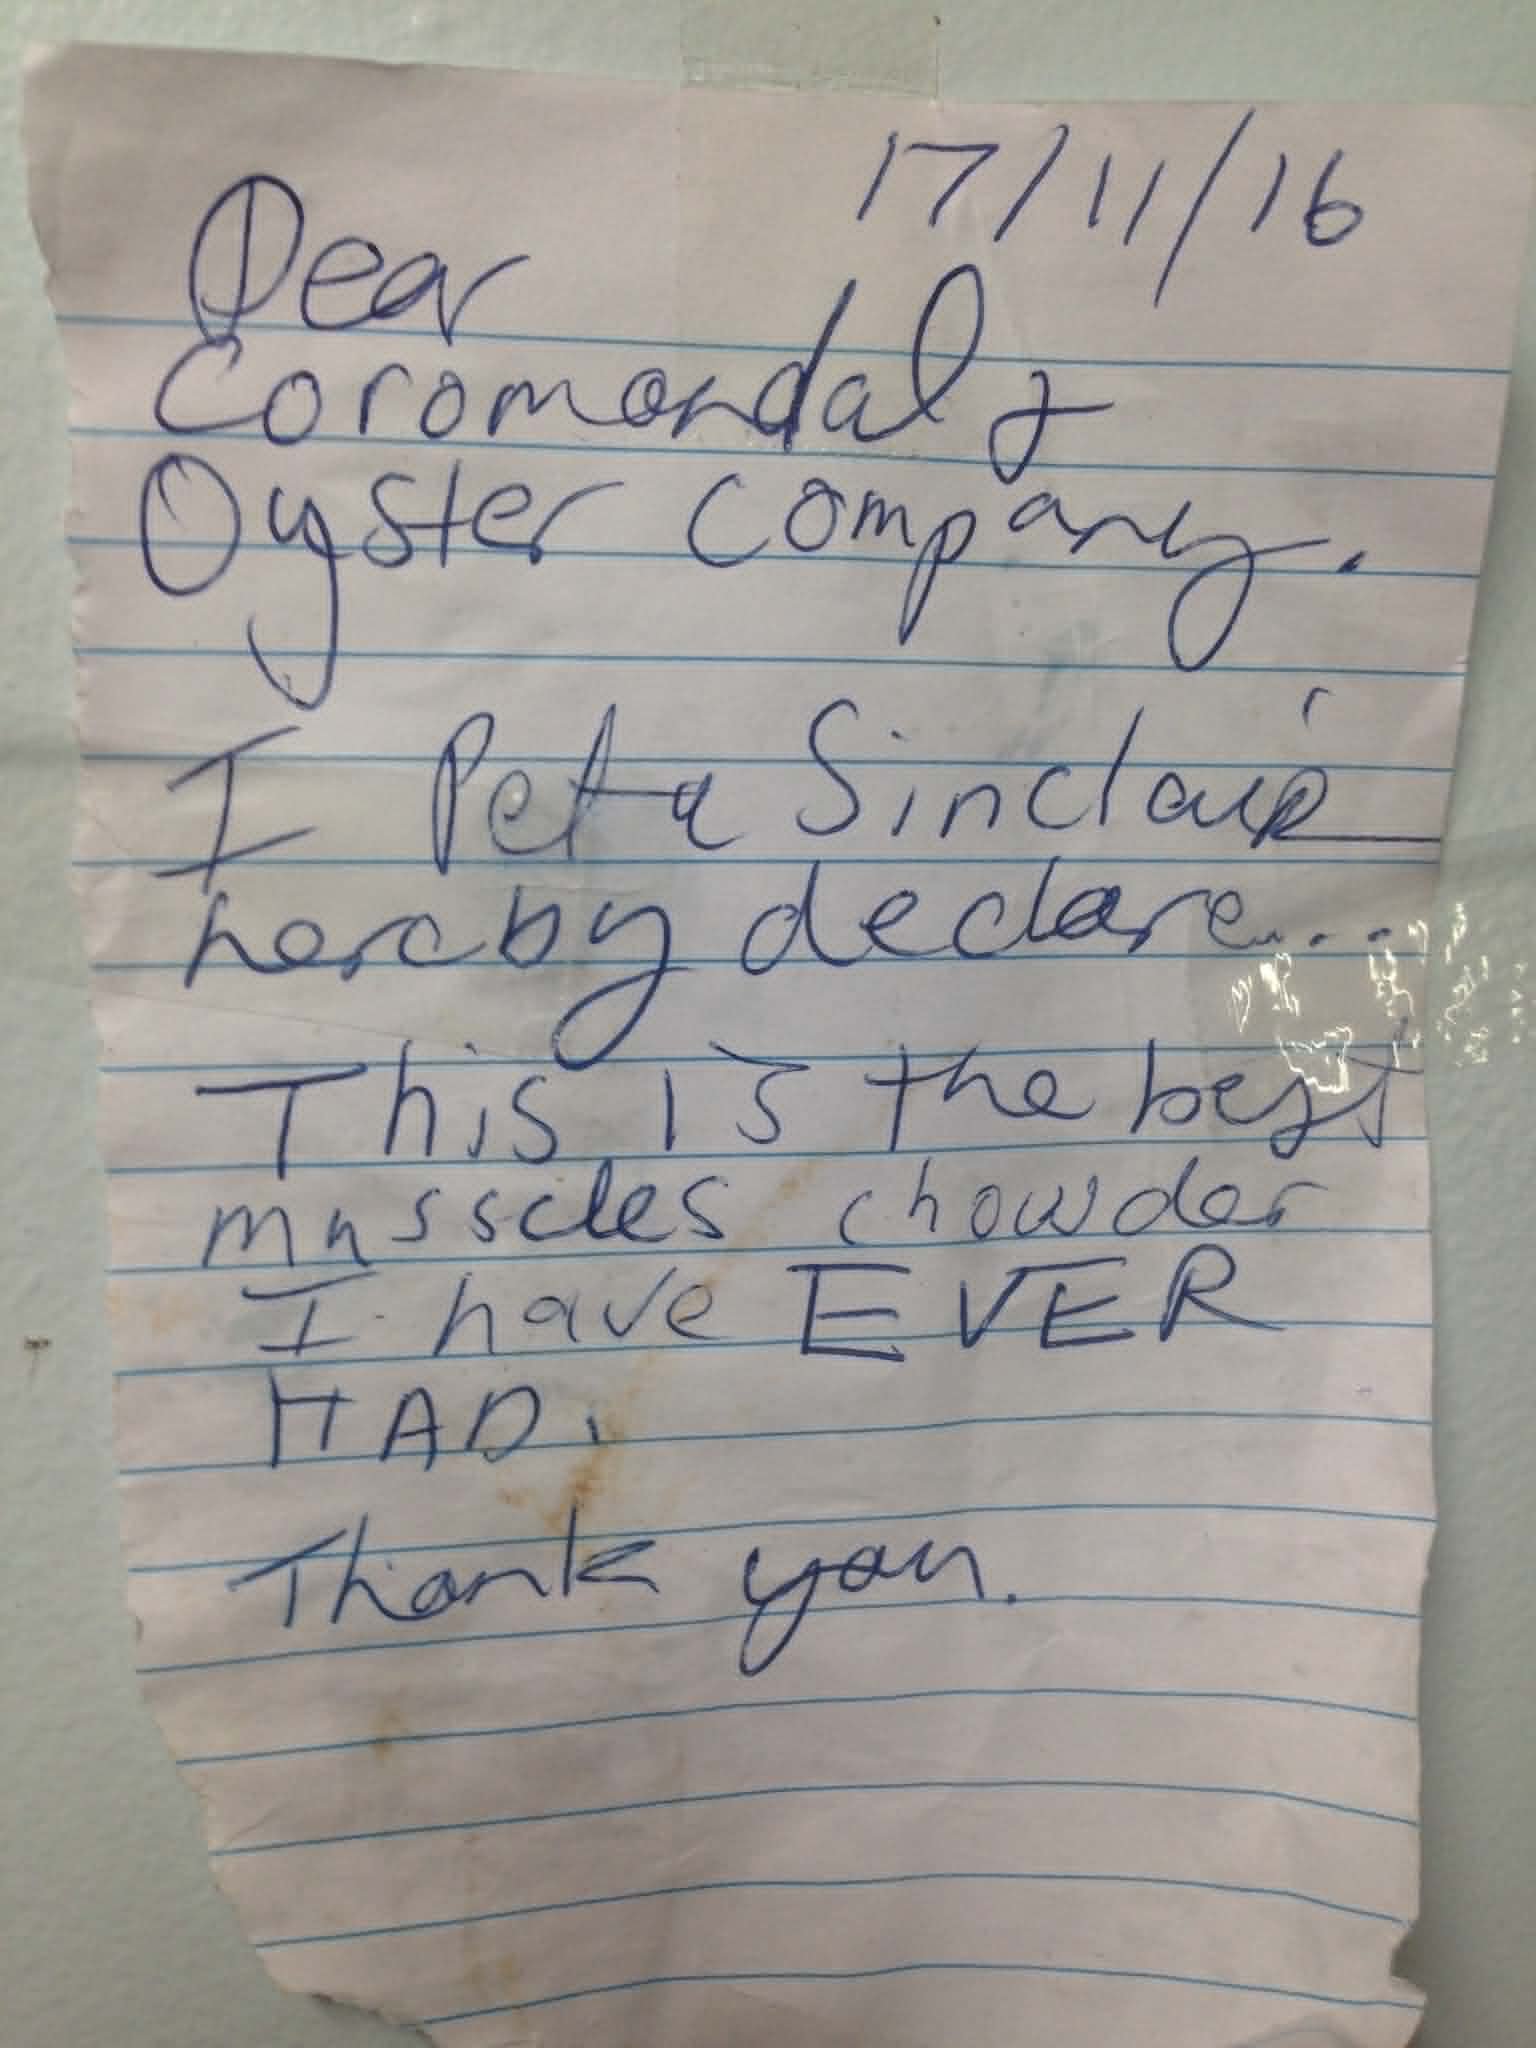 17/11/16
Dear
Coromandal &
Oyster Company.
I Peta Sinclair
hereby declare...
This is the best
musscles chowder
I have EVER
HAD.
Thank you.